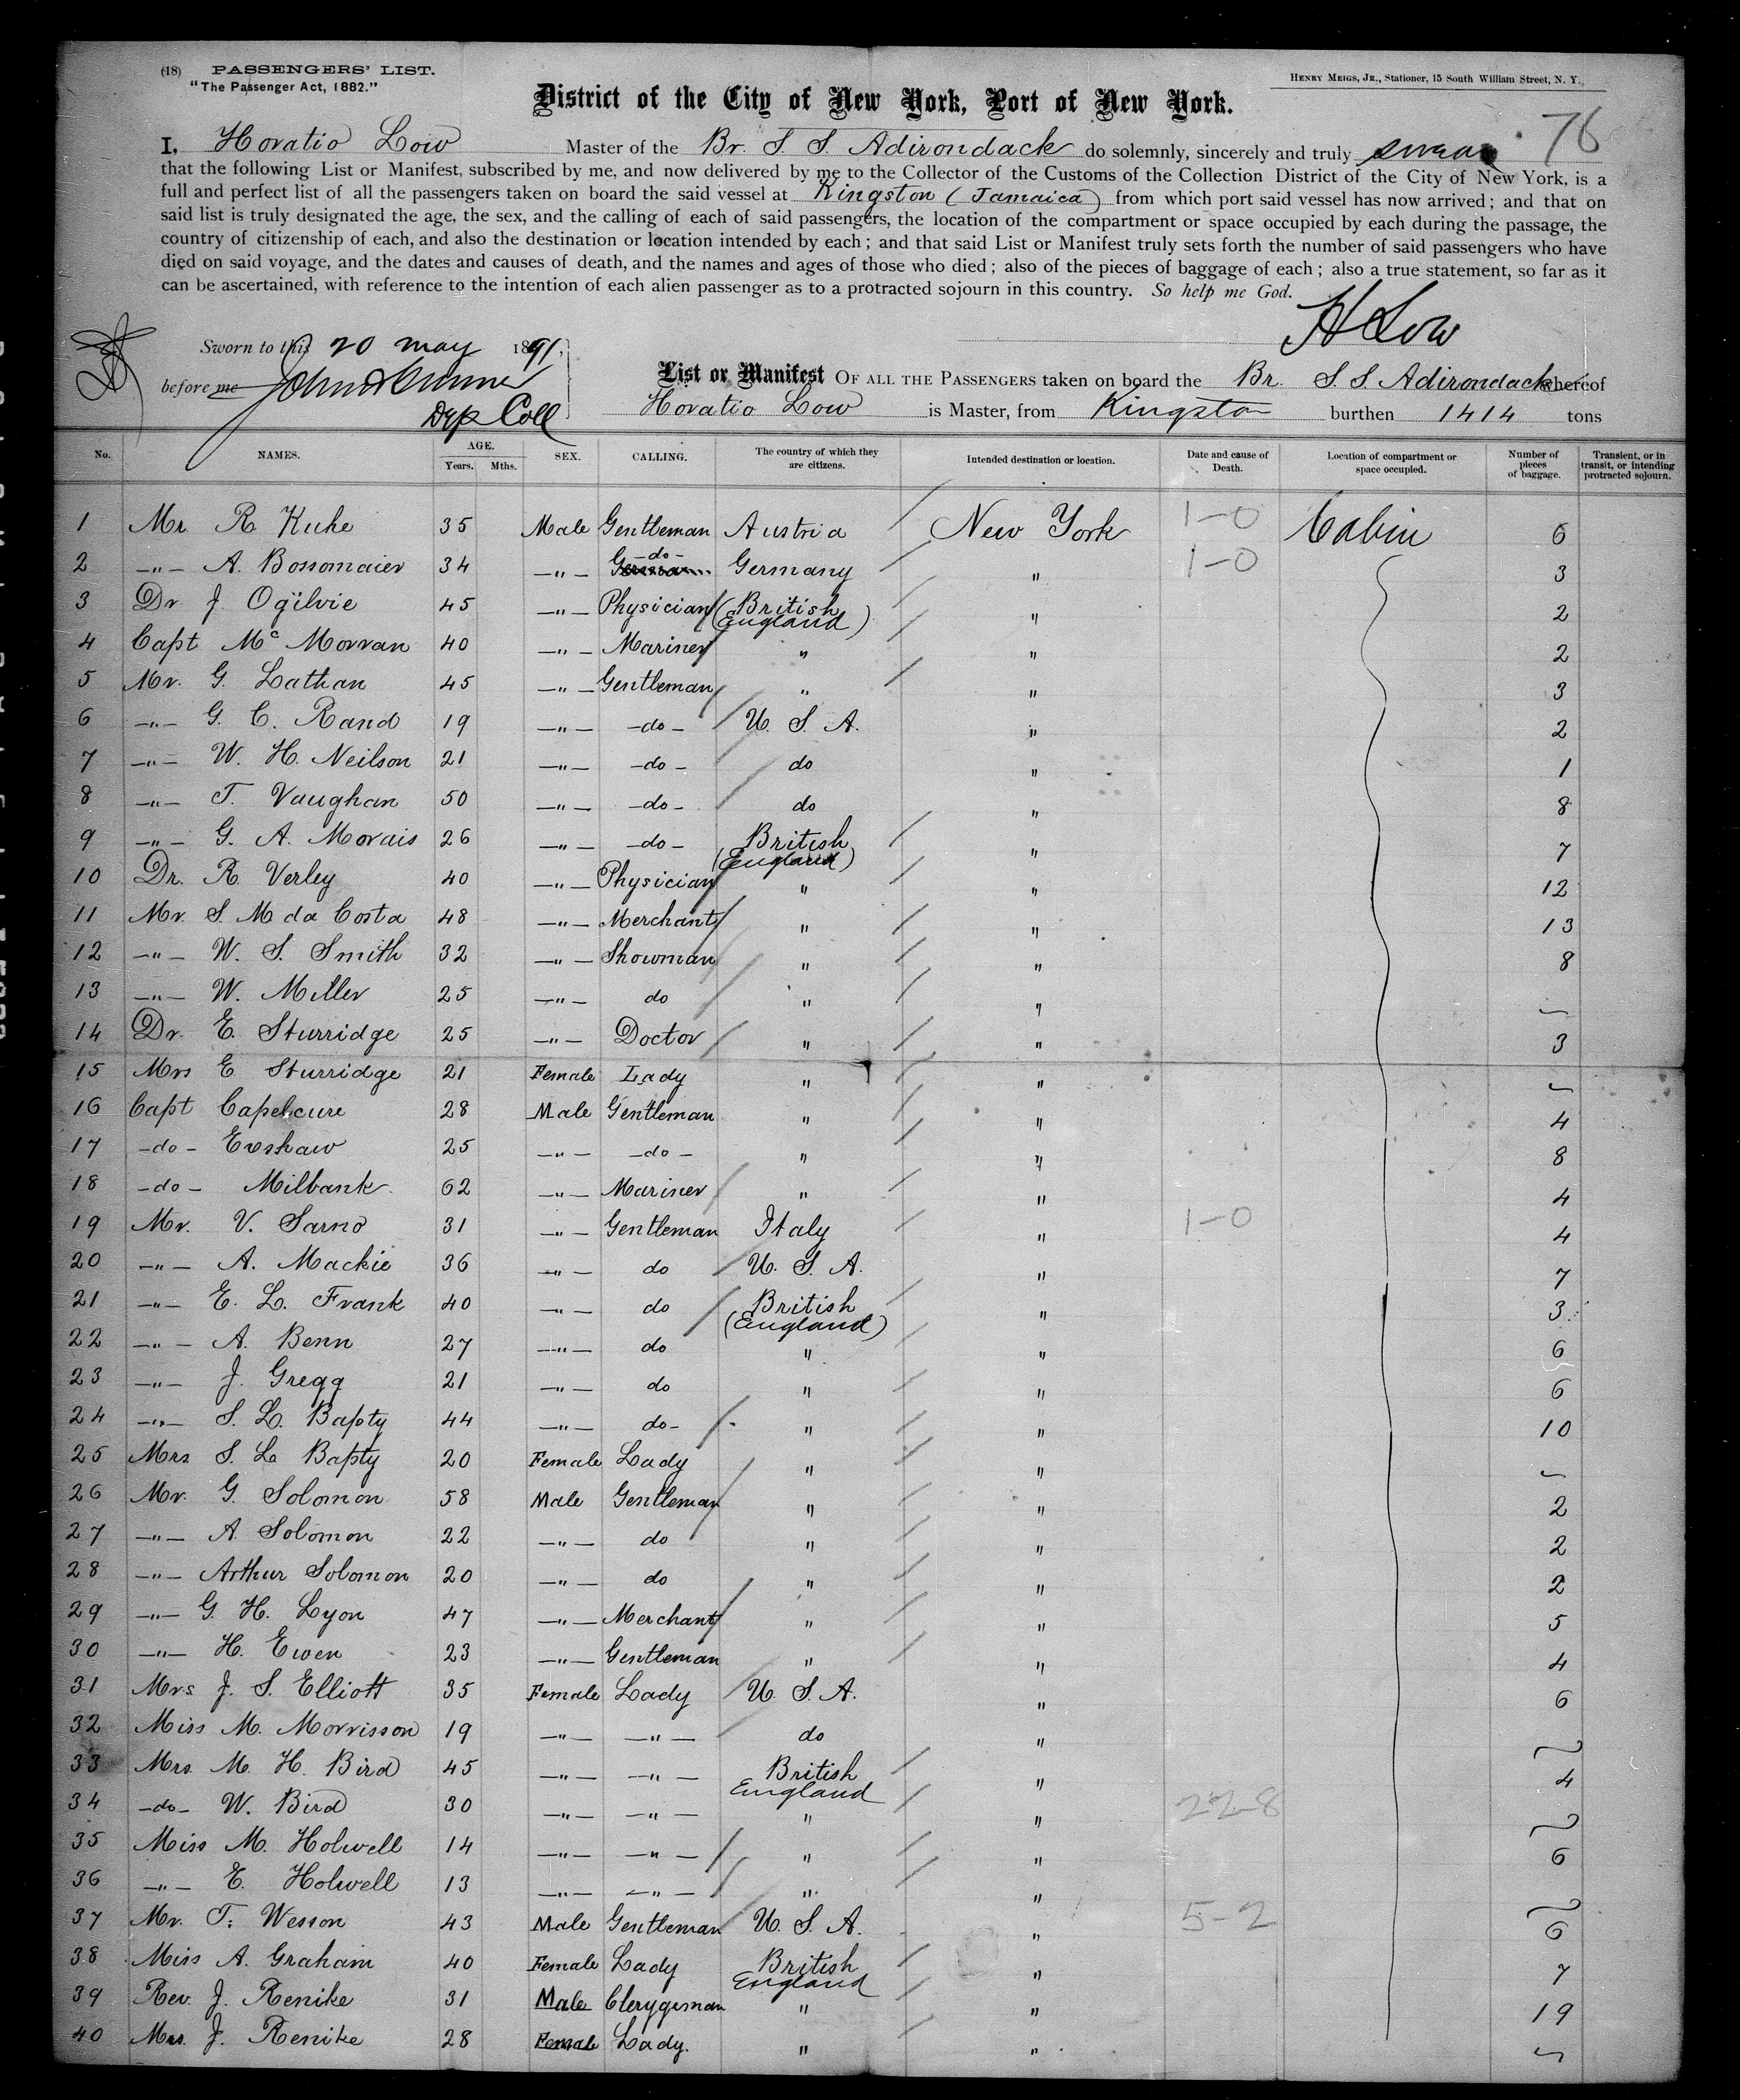 (18) PASSENGERS' LIST.
"The Passenger Act, 1882."
HENRY MEIGS, JR., Stationer, 15 South William Street, N. Y.
District of the City of New York, Port of New York.
76
I, Horatio Low Master of the Br. S. S. Adirondack do solemnly, sincerely and truly swear
that the following List or Manifest, subscribed by me, and now delivered by me to the Collector of the Customs of the Collection District of the City of New York, is a
full and perfect list of all the passengers taken on board the said vessel at Kingston (Jamaica) from which port said vessel has now arrived; and that on
said list is truly designated the age, the sex, and the calling of each of said passengers, the location of the compartment or space occupied by each during the passage, the
country of citizenship of each, and also the destination or location intended by each; and that said List or Manifest truly sets forth the number of said passengers who have
died on said voyage, and the dates and causes of death, and the names and ages of those who died; also of the pieces of baggage of each; also a true statement, so far as it
can be ascertained, with reference to the intention of each alien passenger as to a protracted sojourn in this country. So help me God.
H Low
Sworn to this 20 may 1891,
before me
Dep Coll
List or Manifest OF ALL THE PASSENGERS taken on board the Br. S. S. Adirondack whereof
Horatio Low is Master, from Kingston burthen 1414 tons
No. NAMES. AGE. Years. Mths. SEX. CALLING. The country of which they are citizens. Intended destination or location. Date and cause of Death. Location of compartment or space occupied. Number of pieces of baggage. Transient, or in transit, or intending protracted sojourn.
1 Mr R Kuhe 35 Male Gentleman Austria New York 1-0 Cabin 6
2 -"- A. Bossomaier 34 -"- -do- Germany " 1-0 3
3 Dr J. Ogilvie 45 -"- Physician British (England) " 2
4 Capt Mc Morran 40 -"- Mariner " " 2
5 Mr. G. Lathan 45 -"- Gentleman " " 3
6 -"- G. C. Rand 19 -"- -do- U. S. A. " 2
7 -"- W. H. Neilson 21 -"- -do- do " 1
8 -"- T. Vaughan 50 -"- -do- do " 8
9 -"- G. A. Morais 26 -"- -do- British (England) " 7
10 Dr. R. Verley 40 -"- Physician " " 12
11 Mr. S. M da Costa 48 -"- Merchant " " 13
12 -"- W. S. Smith 32 -"- Showman " " 8
13 -"- W. Miller 25 -"- do " "
14 Dr. E. Sturridge 25 -"- Doctor " " 3
15 Mrs E Sturridge 21 Female Lady " "
16 Capt Capelcure 28 Male Gentleman " " 4
17 -do- Evshaw 25 -"- -do- " " 8
18 -do- Milbank 62 -"- Mariner " " 4
19 Mr. V. Sarno 31 -"- Gentleman Italy " 1-0 4
20 -"- A. Mackie 36 -"- do U. S. A. " 7
21 -"- E. L. Frank 40 -"- do British (England) " 3
22 -"- A. Benn 27 -"- do " " 6
23 -"- J. Gregg 21 -"- do " " 6
24 -"- S. L. Bapty 44 -"- do- " " 10
25 Mrs S. L. Bapty 20 Female Lady " "
26 Mr. G. Solomon 58 Male Gentleman " " 2
27 -"- A. Solomon 22 -"- do " " 2
28 -"- Arthur Solomon 20 -"- do " " 2
29 -"- G. H. Lyon 47 -"- Merchant " " 5
30 -"- H. Ewen 23 -"- Gentleman " " 4
31 Mrs J. S. Elliott 35 Female Lady U. S. A. " 6
32 Miss M. Morrisson 19 -"- -"- do "
33 Mrs. M. H. Bird 45 -"- -"- British England " 4
34 -do- W. Bird 30 -"- -"- " " 22-8
35 Miss M. Holwell 14 -"- -"- " " 6
36 -"- E. Holwell 13 -"- -"- " "
37 Mr. T. Wesson 43 Male Gentleman U. S. A. " 5-2 6
38 Miss A. Graham 40 Female Lady British England " 7
39 Rev. J. Renike 31 Male Clergyman " " 19
40 Mrs. J. Renike 28 Female Lady. " "